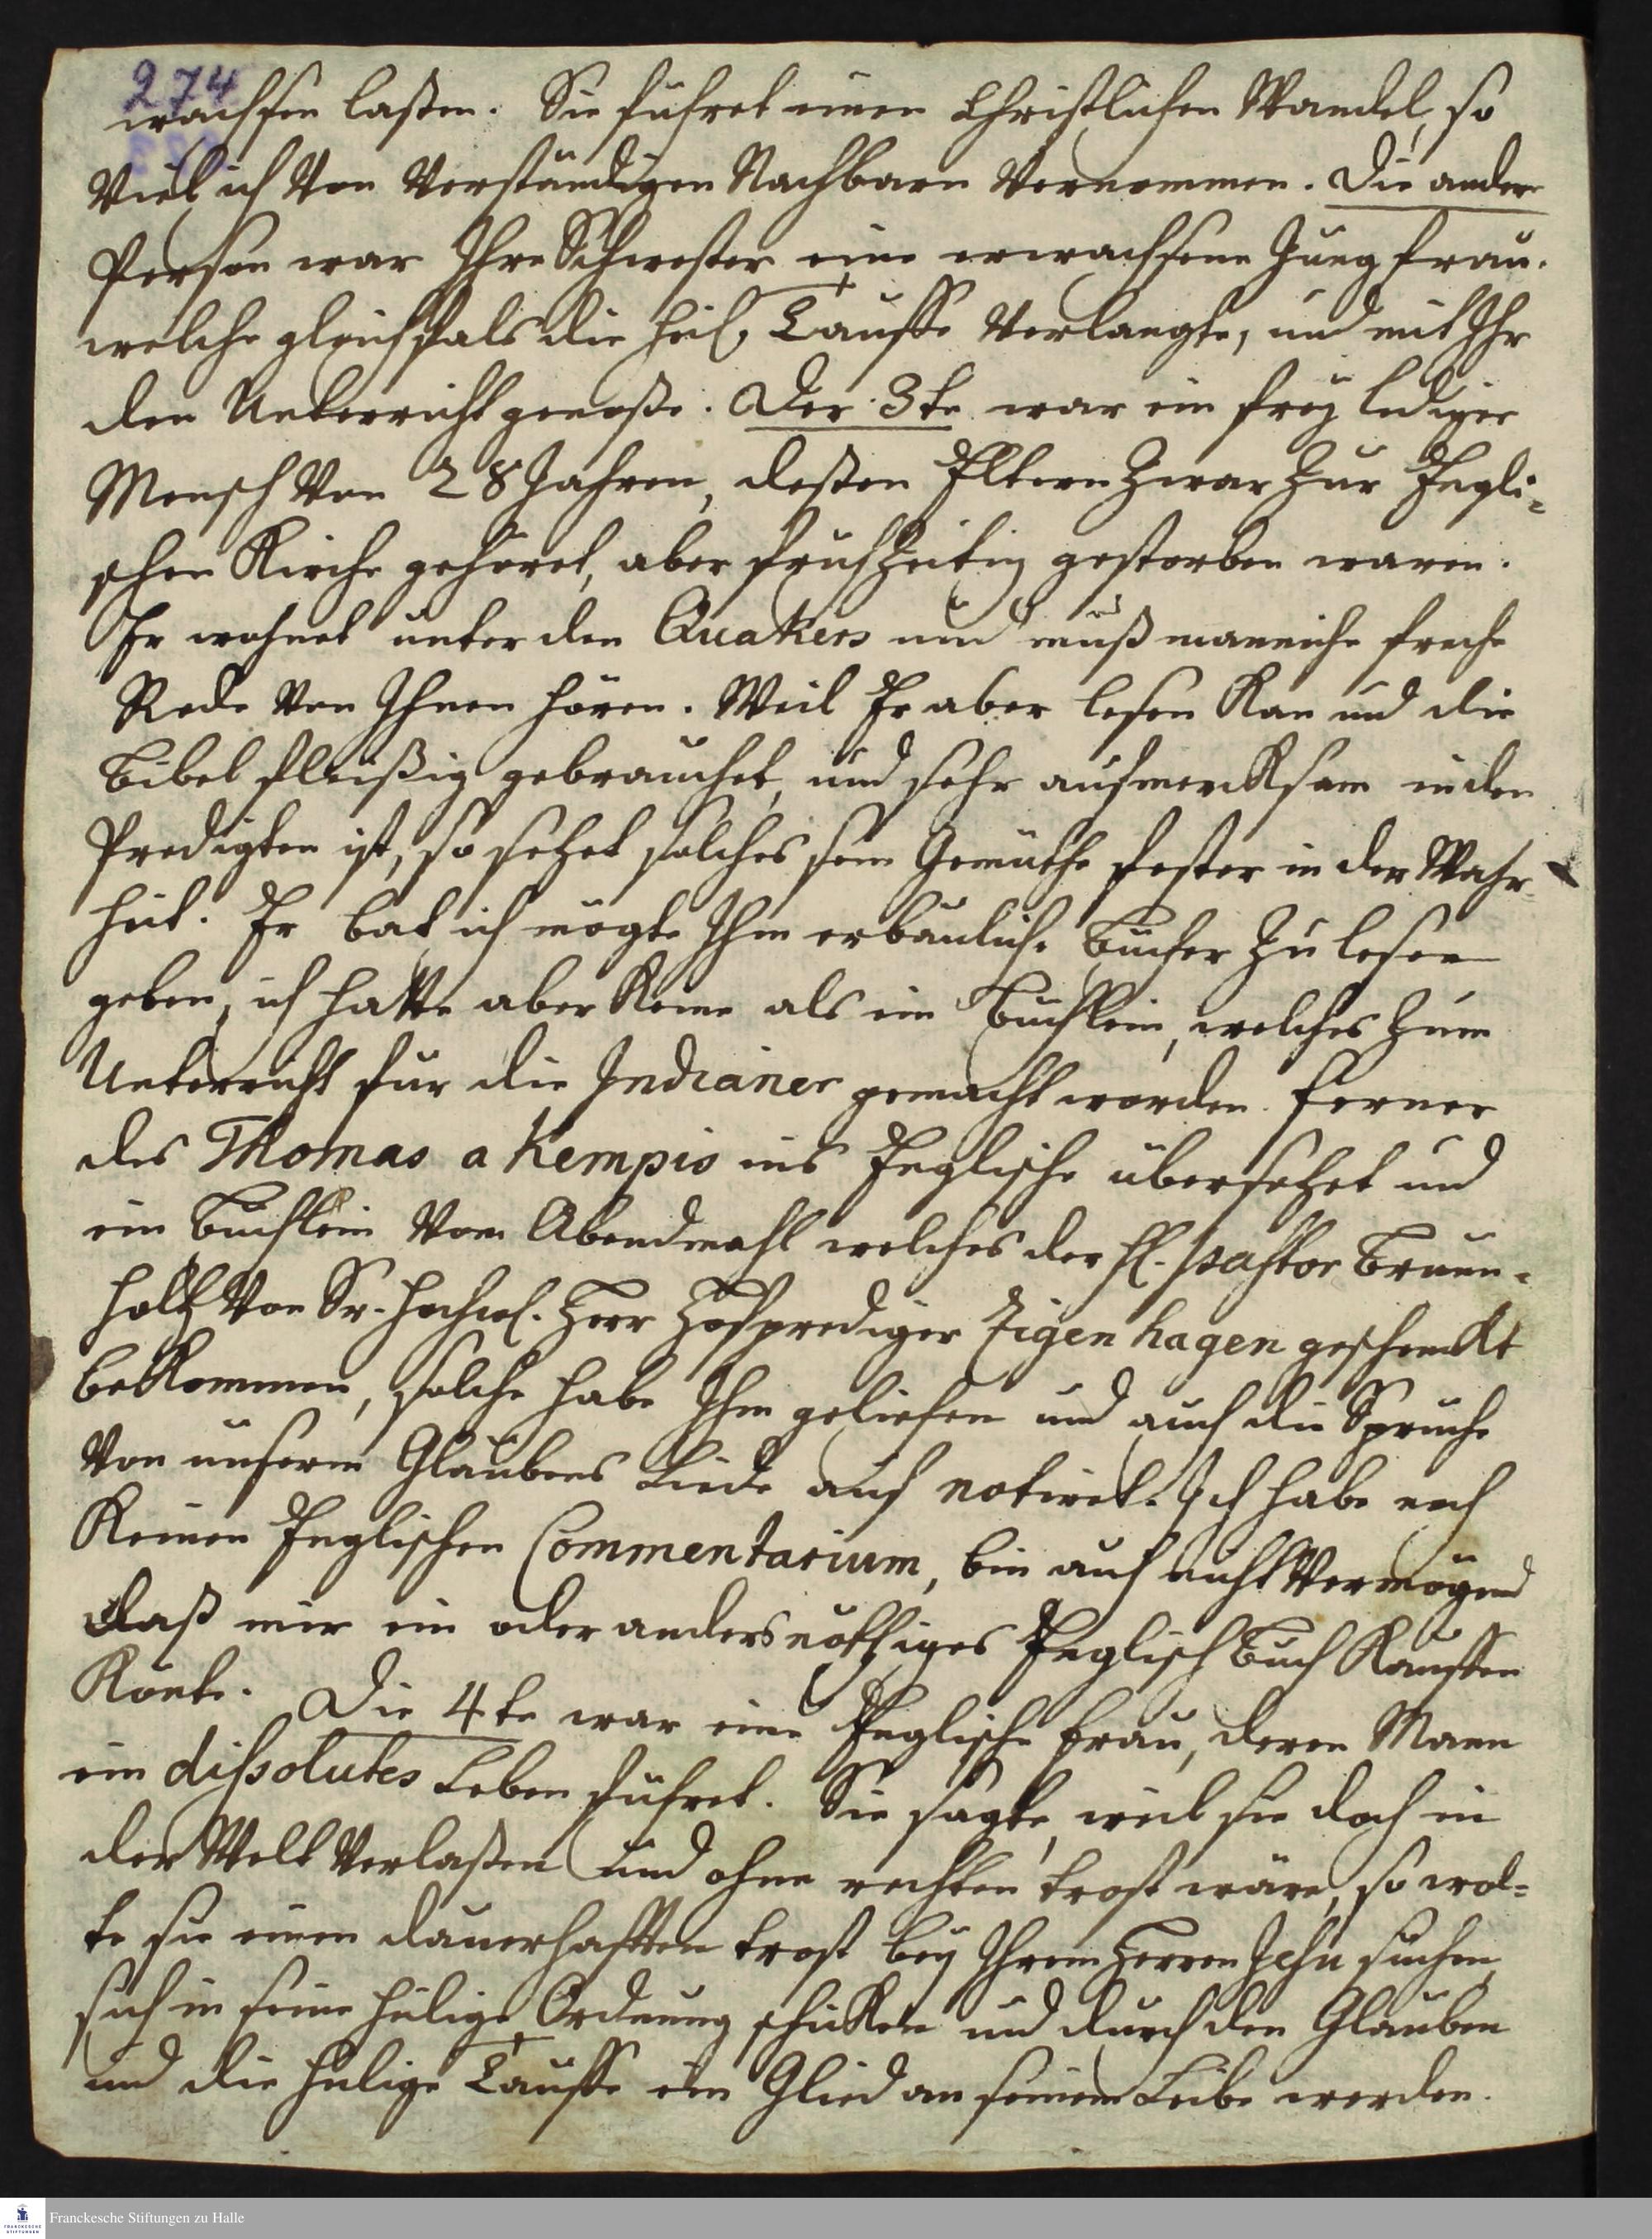 274
wachsen laßen. Sie führet einen Christlichen Wandel, so
Viel ich Von Verständigen Nachbarn Vernommen. Die andere
Person war Ihre Schwester eine erwachsene Jungfrau.
welche gleichfals die heil. Tauffe Verlangte, und mit Ihr
den Unterricht genoße. Der 3te war ein frey lediger
Mensch Von 28 Jahren, deßen Eltern zwar zur Engli-
schen Kirche gehöret, aber fruhzeitig gestorben waren.
Er wohnet unter den Quakers und muß manniche freche
Rede Von Ihnen hören. Weil Er aber lesen Kan und die
Bibel fleißig gebrauchet, und sehr aufmercksam in den
Predigten ist, so setzet solches sein Gemüthe fester in der Wahr-
heit. Er bat ich mögte Ihm erbauliche Bücher zu lesen
geben, ich hatte aber Keine als ein Büchlein, welches zum
Unterricht fur die Indianer gemacht worden. ferner
des Thomas a Kempis ins Englische übersetzet und
ein Büchlein Vom Abendmahl welches der H. Pastor Brunn-
holtz Von Sr. Hochw. Herr Hofprediger Zigenhagen geschenckt
beKommen, solche habe Ihm geliehen und auch die Spruche
Von unserm Glaubens Liede auf notiret. Ich habe noch
Keinen Englischen Commentarium, bin auch nicht Vermögend
daß mir ein oder anders nöthiges Englisch Buch Kauffen
Könte. Die 4te war eine Englische frau, deren Mann
ein dissolutes Leben führet. Sie sagte, weil sie doch in
der Welt Verlaßen und ohne rechten trost wäre, so wol-
te sie einen dauerhafften trost bey Ihrem Herren Jesu suchen,
sich in seine heilige Ordnung schicken und durch den Glauben
und die heilige Tauffe ein Glied an seinem Leibe werden.
Franckesche Stiftungen zu Halle